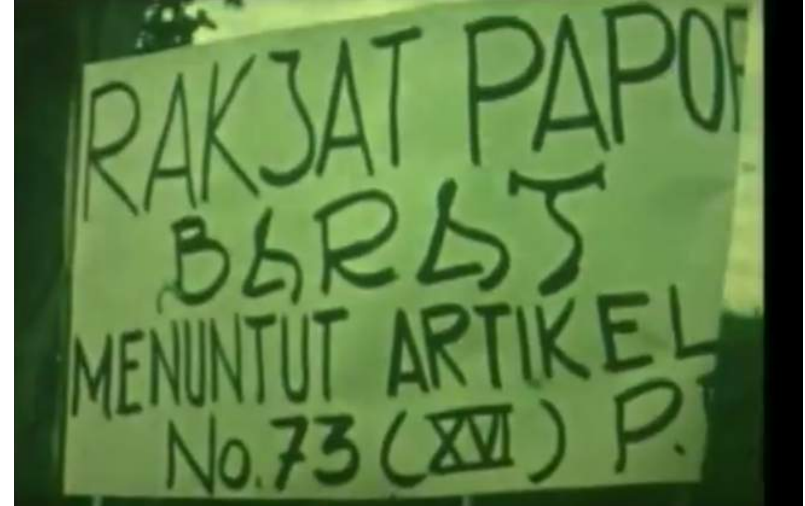 RAKJAT PAPO
BARAT
MENUNTUT ARTIKEL
No. 73 (XVI) P.